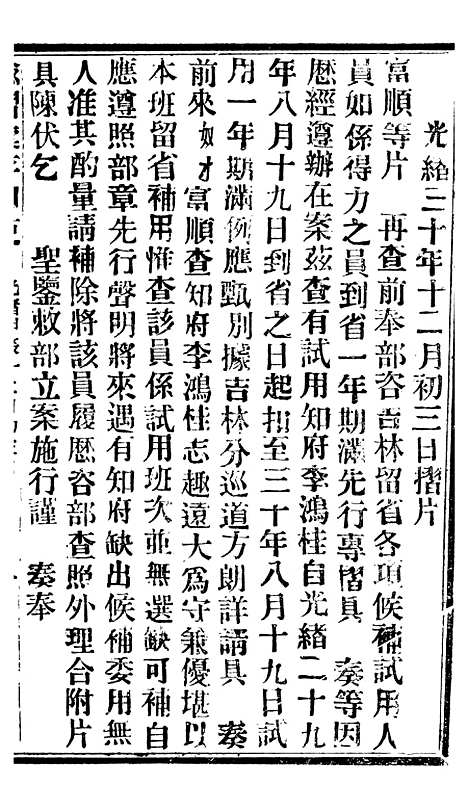 光緒三十年十二月初三日摺片
富順等片　再查前奉部咨吉林留省各項候補試用人
員如係得力之員到省一年期滿先行專摺具　奏等因
歷經遵辦在案茲查有試用知府李鴻桂自光緒二十九
年八月十九日到省之日起扣至三十年八月十九日試
用一年期滿例應甄別據吉林分巡道方朗詳請具　奏
前來奴才富順查知府李鴻桂志趣遠大為守兼優堪以
本班留省補用惟查該員係試用班次並無選缺可補自
應遵照部章先行聲明將來遇有知府缺出候補委用無
人准其酌量請補除將該員履歷咨部查照外理合附片
具陳伏乞　聖鑒敕部立案施行謹　奏奉